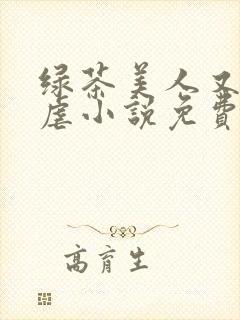 绿茶美人又
虐小説免費
高育生